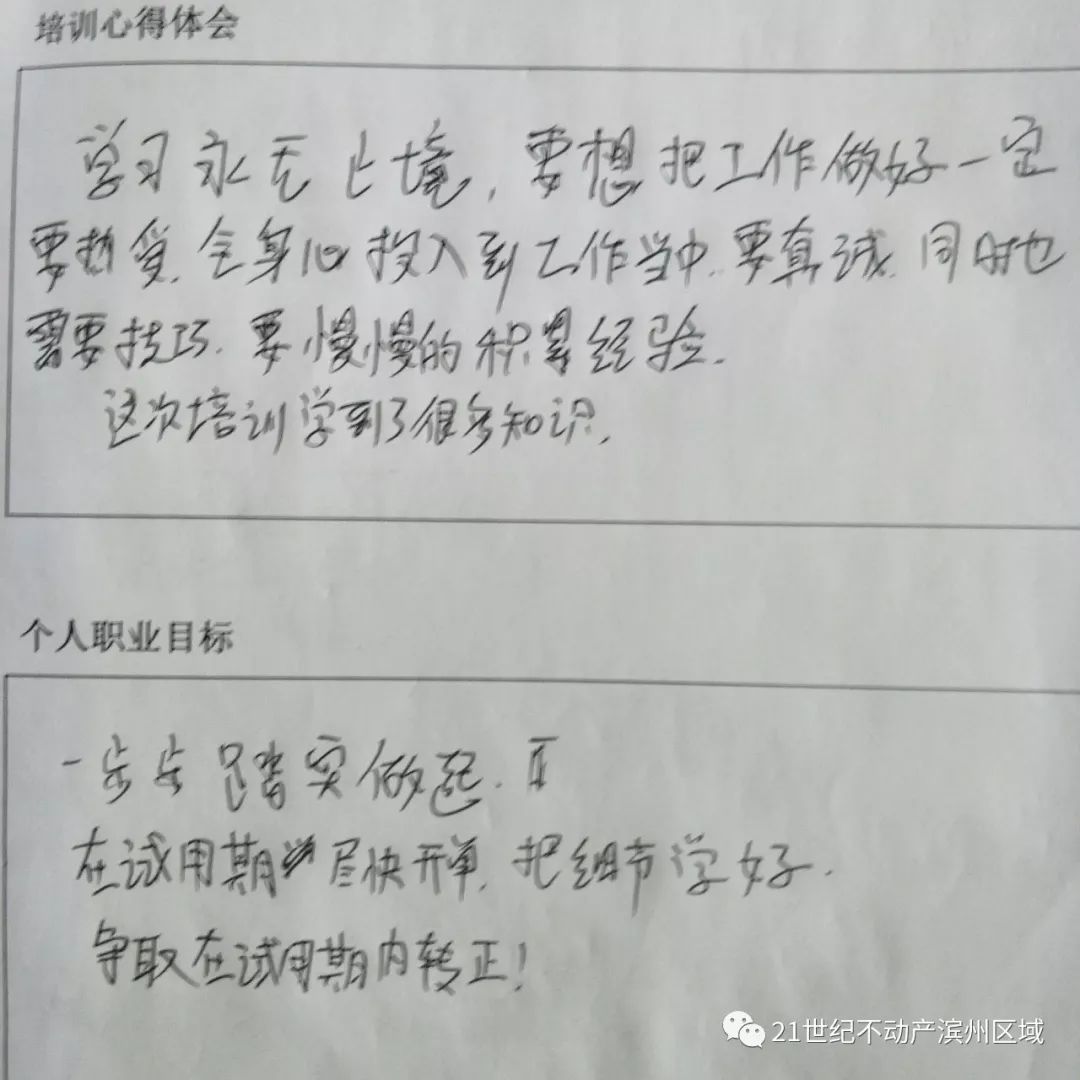 培训心得体会
学习永无止境，要想把工作做好一定
要热爱，全身心投入到工作当中，要真诚，同时也
需要技巧，要慢慢的积累经验。
这次培训学到了很多知识，
个人职业目标
一步步踏实做起。
在试用期尽快开单，把细节学好。
争取在试用期内转正！
21世纪不动产滨州区域